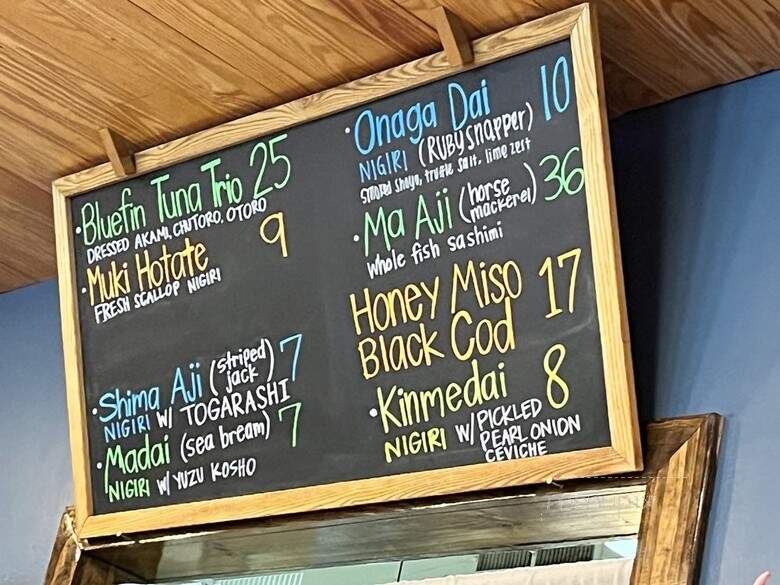 • Bluefin Tuna Trio 25
DRESSED AKAMI, CHUTORO, OTORO
• Muki Hotate 9
FRESH SCALLOP NIGIRI
• Shima Aji (striped jack) 7
NIGIRI W/ TOGARASHI
• Madai (sea bream) 7
NIGIRI W/ YUZU KOSHO
• Onaga Dai 10
NIGIRI (RUBY SNAPPER)
Smoked Shoyu, truffle salt, lime zest
• Ma Aji (horse mackerel) 36
Whole fish sashimi
Honey Miso 17
Black Cod
• Kinmedai 8
NIGIRI W/ PICKLED
PEARL ONION
CEVICHE